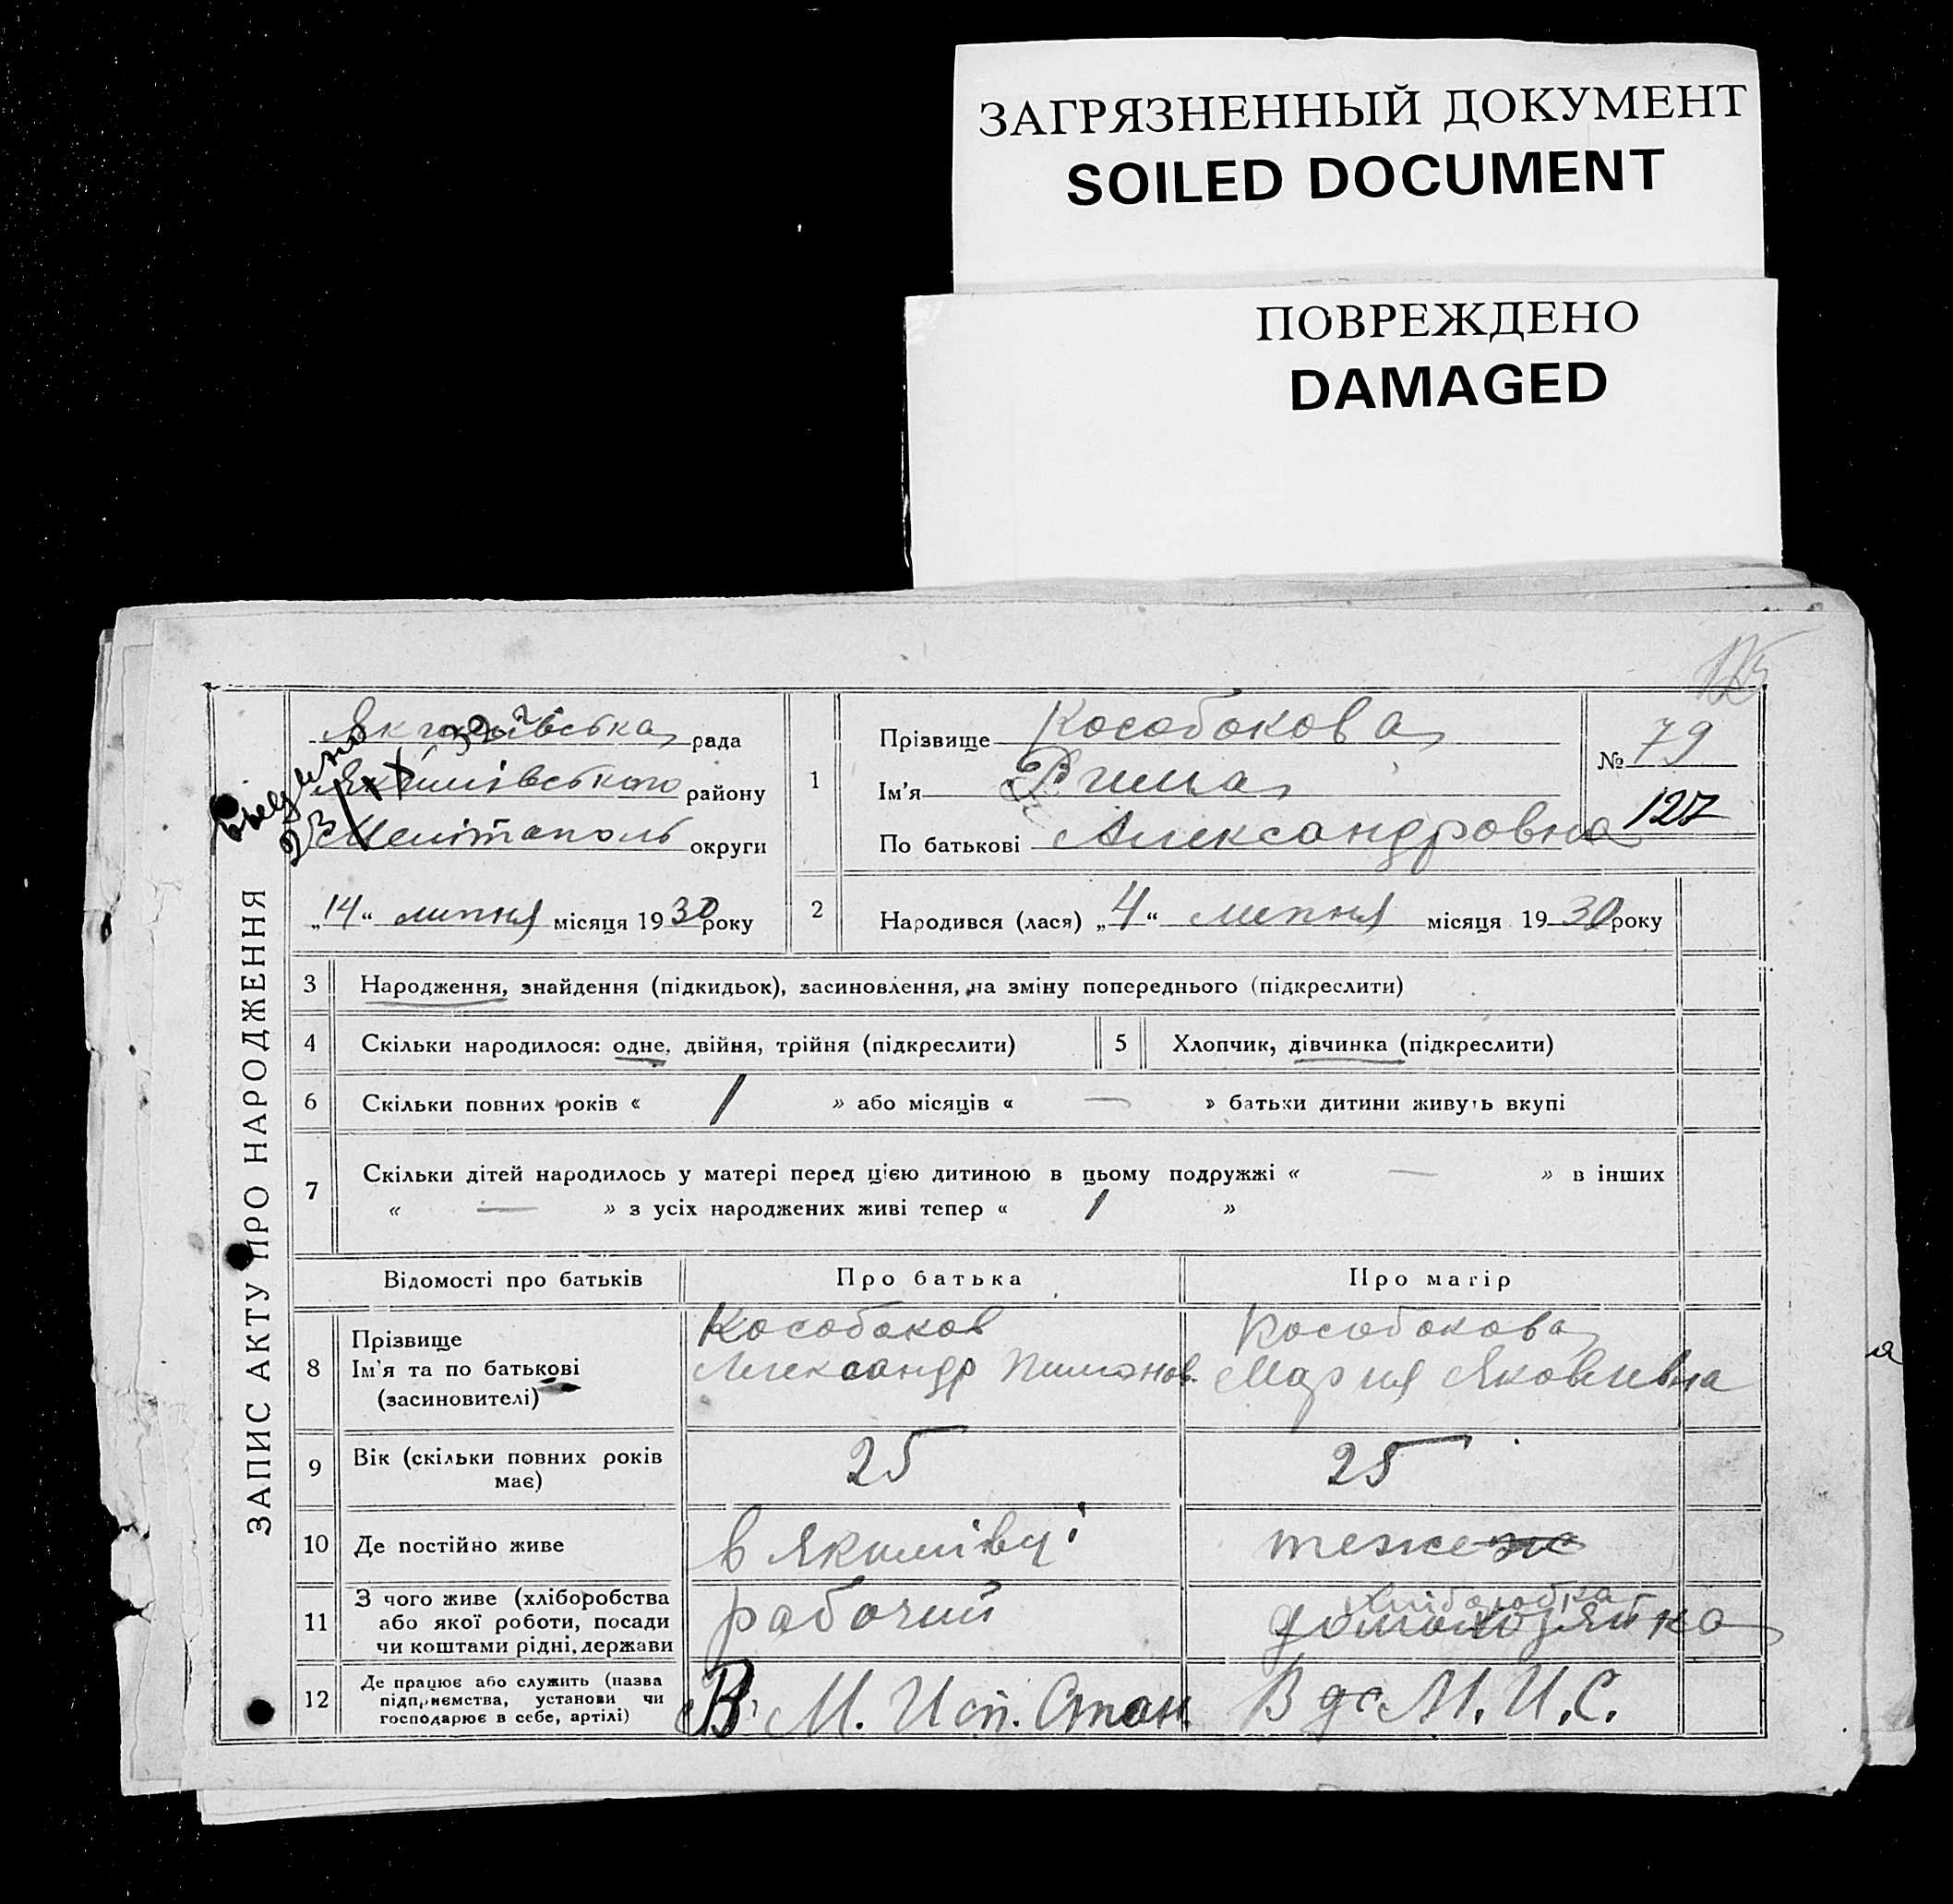 ЗАГРЯЗНЕННЫЙ ДОКУМЕНТ
SOILED DOCUMENT
ПОВРЕЖДЕНО
DAMAGED
ЗАПИС АКТУ ПРО НАРОДЖЕННЯ
Якимівська рада
Якимівського району
Мелітополь округи
„14“ липня місяця 1930 року
1 Прізвище Кособокова
Ім'я Римма
По батькові Александровна
№ 79
127
2 Народився (лася) „4“ липня місяця 1930 року
3 Народження, знайдення (підкидьок), засиновлення, на зміну попереднього (підкреслити)
4 Скільки народилося: одне, двійня, трійня (підкреслити) 5 Хлопчик, дівчинка (підкреслити)
6 Скільки повних років « 1 » або місяців « — » батьки дитини живуть вкупі
7 Скільки дітей народилось у матері перед цією дитиною в цьому подружжі « — » в інших
« — » з усіх народжених живі тепер « 1 »
Відомості про батьків Про батька Про матір
8 Прізвище Кособоков Кособокова
Ім'я та по батькові Александр Пимонов. Мария Яковлевна
(засиновителі)
9 Вік (скільки повних років має) 25 25
10 Де постійно живе в Якимівці теже
11 З чого живе (хліборобства
або якої роботи, посади
чи коштами рідні, держави
рабочий хліборобка домохозяйка
12 Де працює або служить (назва
підприємства, установи чи
господарює в себе, артілі)
В М. Исп. Стан. В дс. М. И. С.